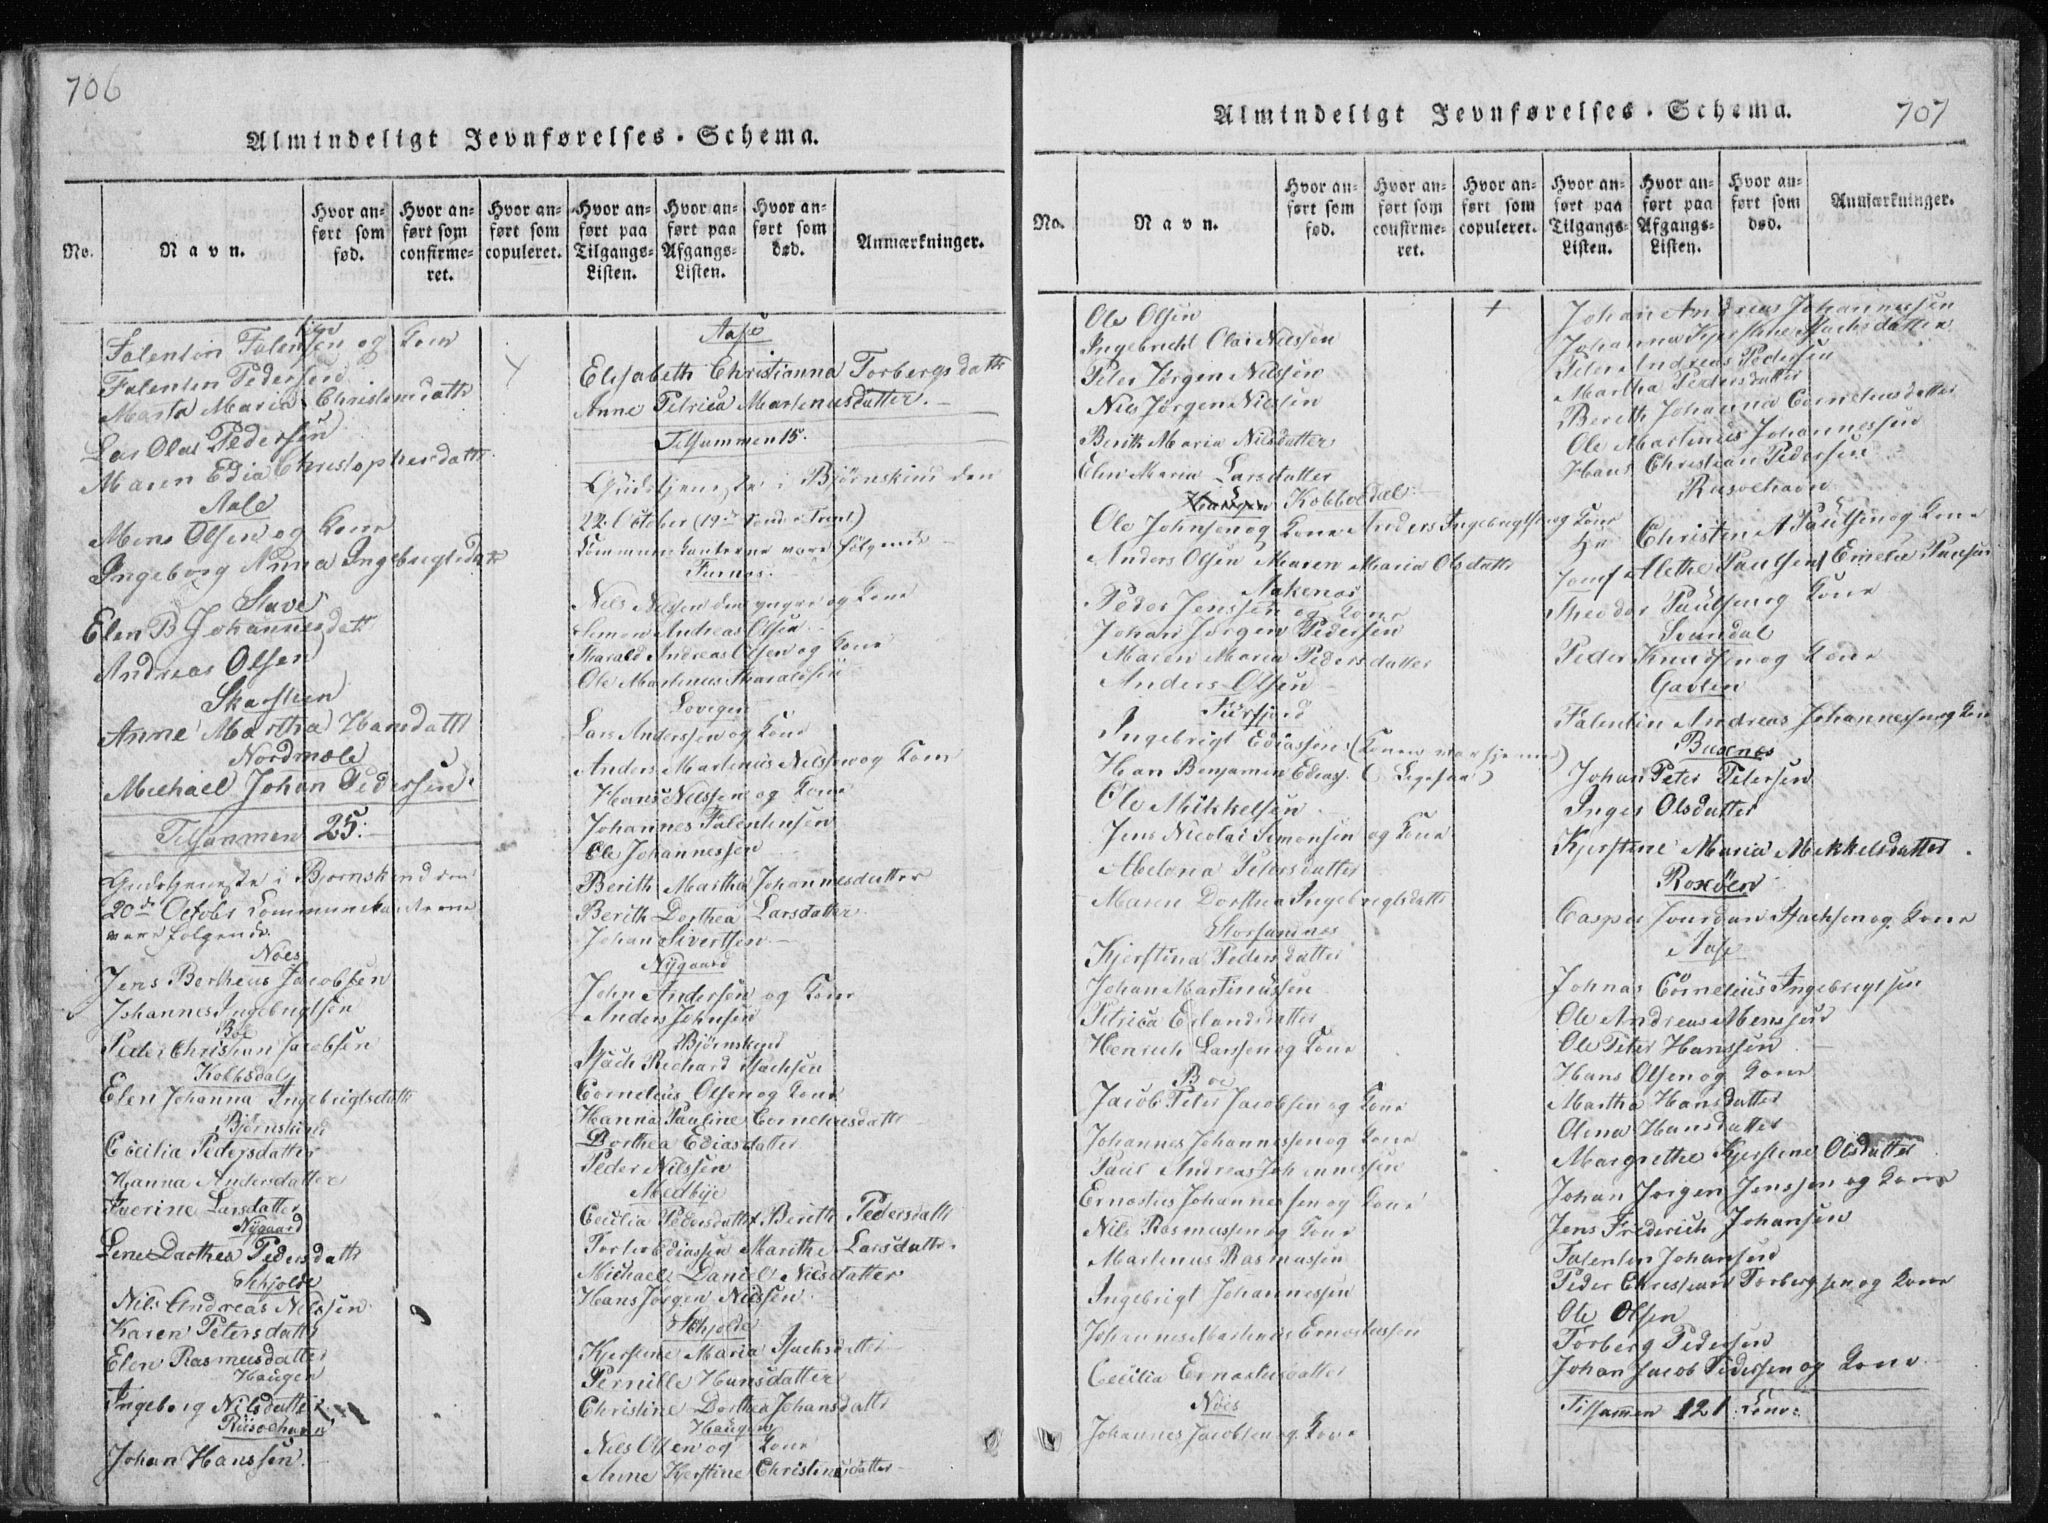 706
Almindeligt Jevnførelses-Schema.
No.
Navn.
Hvor anført som fød.
Hvor anført som confirmeret.
Hvor anført som copuleret.
Hvor anført paa Tilgangs-Listen.
Hvor anført paa Afgangs-Listen.
Hvor anført som død.
Anmærkninger.
Falentin Falensen og Kone
Falentin Pedersen
Marta Maria Christensdatt
Lars Olai Pedersen
Maren Edia Christophersdatt
Aase
Mons Olsen og Kone
Ingeborg Anna Ingebrigtsdatt
Slave
Elen B Johannesdatt
Andreas Olsen
Skarstien
Anne Martha Hansdatt
Nordmæle
Michael Johan Pedersen
Tilsammen 25.
Gudstjeneste i Bjørnskind den
20de Octobr Communikanterne
vare følgende
Nöes
Jens Bertheus Jacobsen
Johannes Ingebrigtsen
Böe
Peder Christian Jacobsen
Kobbsdal
Elen Johanna Ingebrigtsdatt
Bjørnskind
Cecilia Pedersdatter
Hanna Andersdatter
Iverine Larsdatter
Nygaard
Lene Dorthea Pedersdatt
Skjolde
Nils Andreas Nilssen
Karen Petersdatt
Elen Rasmusdatter
Haugen
Ingeborg Nilsdatter
Risøehavn
Johan Hanssen
Aase
Elisabeth Christianna Torbergsdatt
Anne Petrica Martenusdatter.
Tilsammen 15.
Gudstjeneste i Bjørnskind den
22. October (19de Sønd. e Trent)
Communikanterne vare følgende
Furnæs.
Nils Nilssen den yngre og Kone
Simon Andreas Olsen
Harald Andreas Olsen og Kone
Ole Martinus Haraldsen
Lovigen
Lars Anderssen og Kone
Anders Martinus Nilssen og Kone
Hans Nilssen og Kone
Johannes Falentinsen
Ole Johannessen
Berith Martha Johannesdatter
Berith Dorthea Larsdatter
Johan Sivertsen
Nygaard
John Andersen og Kone
Anders Johnsen
Bjørnskind
Isach Richard Isachsen
Cornelius Olsen og Kone
Hanna Pauline Corneliusdatt
Dorthea Ediasdatter
Peder Nilssen
Medbye
Cecilia Pedersdatter Berith Pedersdatt
Torber Ediassen Marithe Larsdatter
Michael Daniel Nilsdatter
Hans Jørgen Nilssen
Skjolde
Kjerstine Maria Isachsdatter
Pernille Hansdatter
Christine Dorthea Johansdatt
Haugen
Nils Olsen og Kone
Anne Kjerstine Christinesdatter
707
Almindeligt Jevnførelses-Schema.
No.
Navn.
Hvor anført som fød.
Hvor anført som confirmeret.
Hvor anført som copuleret.
Hvor anført paa Tilgangs-Listen.
Hvor anført paa Afgangs-Listen.
Hvor anført som død.
Anmærkninger.
Ole Olsen
Ingebrecht Olai Nilssen
Peter Jørgen Nilssen
Nils Jørgen Nilssen
Berith Maria Nilsdatter
Elen Maria Larsdatter
Kobboedal
Ole Johnsen og Kone Anders Ingebrigtsen og Kone
Anders Olsen Maren Maria Olsdatt
Aakenæs
Peder Jenssen og Kone
Johan Jørgen Pedersen
Maren Maria Pedersdatter
Anders Olsen
Ingebrigt Ediassen (Konen var hjemme)
Han Benjamin Edias. (Ligesaa)
Ole Mikkelsen
Jens Nicolai Simonsen og Kone
Abelona Petersdatter
Maren Dorthea Ingebrigtsdatt
Storsandnes
Kjerstina Pedersdatter
Johan Martinussen
Petrica Erlandsdatter
Henrich Larssen og Kone
Boe
Jacob Peter Jacobsen og Kone
Johannes Johannessen og Kone
Paul Andreas Johannessen
Ernostus Johannessen og Kone
Nils Rasmussen og Kone
Martenus Rasmussen
Ingebrigt Johannessen
Johannes Martenus Ernostussen
Cecilia Ernostusdatter
Nöes
Johannes Jacobsen og Kone
Johan Andreas Johannessen
Johanna Kjerstine Isachsdatter
Peter Andreas Pedersen
Martha Pedersdatter
Berith Johanna Corneliusdatter
Ole Martinus Johannessen
Hans Christian Pedersen
Risoehavn
Hr Christen A Paulsen og Kone
Jomf Alethe Paulsen, Emelie Paulsen
Theodor Paulsen og Kone
Svandal
Peder Knudsen og Kone
Gavlen
Falentin Andreas Johannessen og Kone
Buxenæs
Johan Peter Petersen
Inger Olsdatter
Kjerstine Maria Mikkelsdatter
Roxöen
Casper Jourdan Isachsen og Kone
Aase
Johnas Cornelius Ingebrigtsen
Ole Andreas Monssen
Ole Peter Hanssen
Hans Olsen og Kone
Martha Hansdatter
Olena Hansdatter
Margrethe Kjerstene Olsdatter
Johan Jørgen Jenssen og Kone
Jens Frederich Johansen
Falentin Johansen
Peder Christian Torbergsen og Kone
Ole Olsen
Torberg Pedersen
Johan Jacob Pedersen og Kone
Tilsamen 121